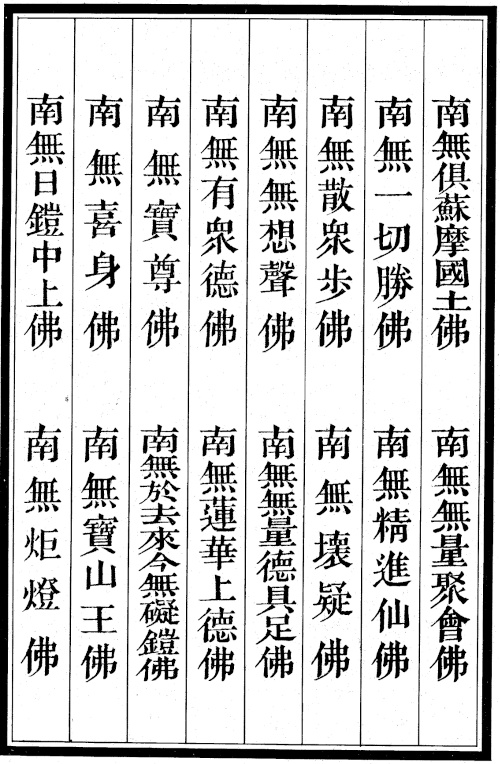 南無俱蘇摩國土佛
南無無量聚會佛
南無一切勝佛
南無精進仙佛
南無散眾步佛
南無壞疑佛
南無無想聲佛
南無無量德具足佛
南無有眾德佛
南無蓮華上德佛
南無寶尊佛
南無於去來今無礙鎧佛
南無喜身佛
南無寶山王佛
南無日鎧中上佛
南無炬燈佛